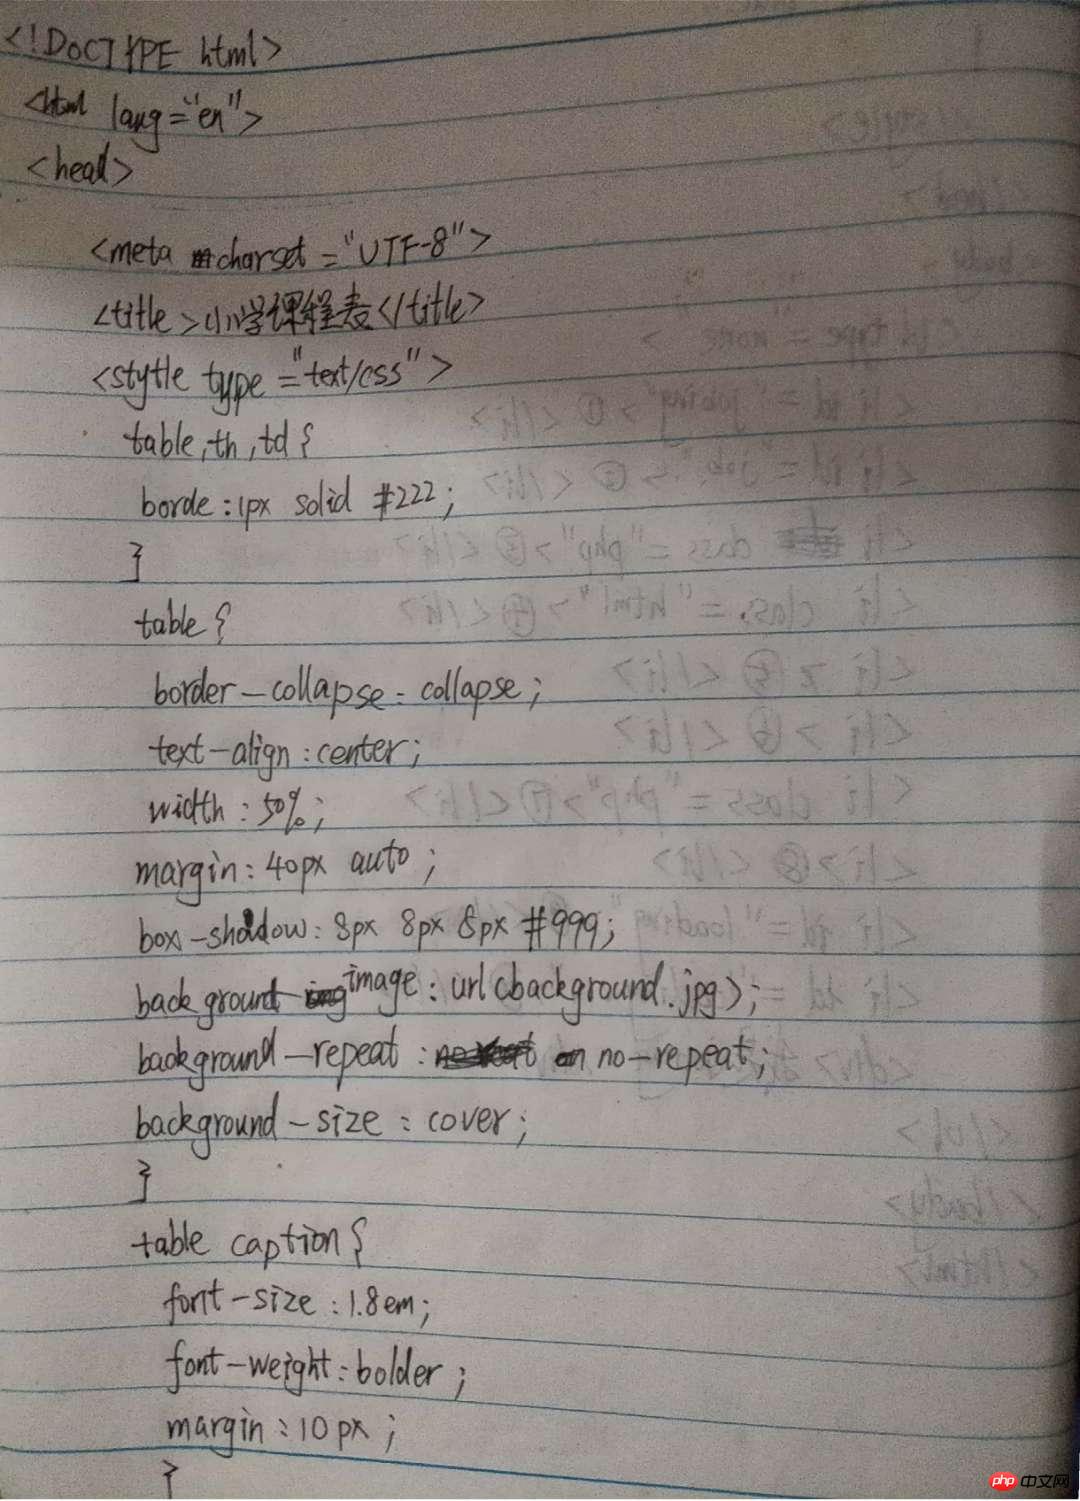 <!DOCTYPE html>
<html lang="en">
<head>
<meta charset="UTF-8">
<title>小学课程表</title>
<stytle type="text/css">
table,th,td{
borde:1px solid #222;
}
table{
border-collapse:collapse;
text-align:center;
width:50%;
margin:40px auto;
box-shadow:8px 8px 8px #999;
backgrount-image:url(background.jpg);
background-repeat:no-repeat;
background-size:cover;
}
table caption{
font-size:1.8em;
font-weight:bolder;
margin:10px;
}
php 中文网